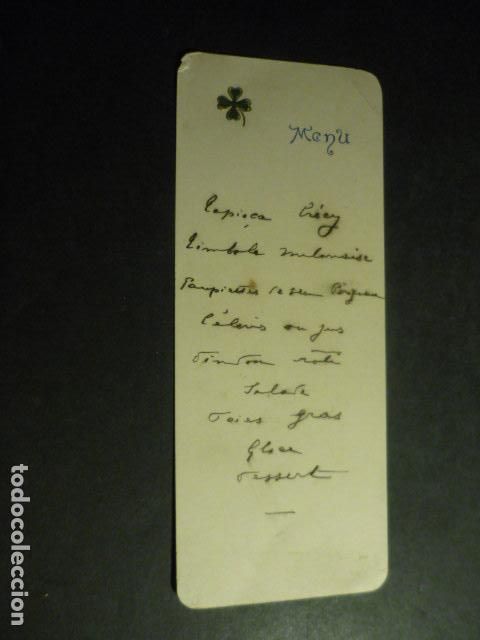 Menu
Tapioca Crécy
Timbale milanaise
Paupiettes de
Céleris au jus
Dindon rôti
Salade
Foies gras
Glace
Dessert
todocoleccion